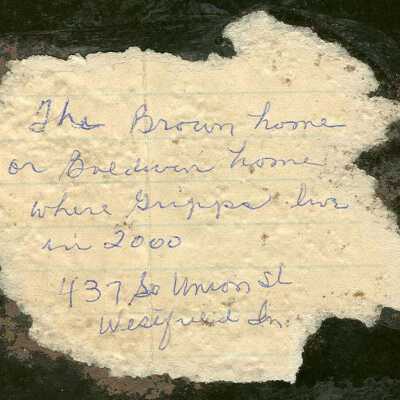 The Brown home
or Baldwin home
where Gripps live
in 2000
437 So Union St
Westfield In.